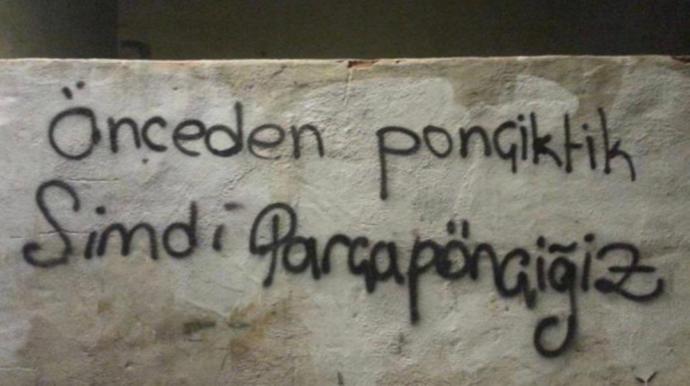 Önçeden ponçiktik
Simdi Parçapönçiğiz